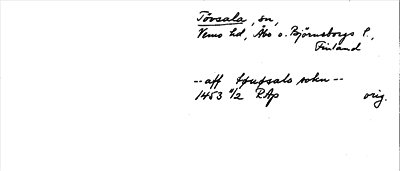 Tövsala, sn,
Vemo hd, Åbo o. Björneborgs l.,
Finland
--aff tøffsala sokn--
1453 4/2 RAp orig.